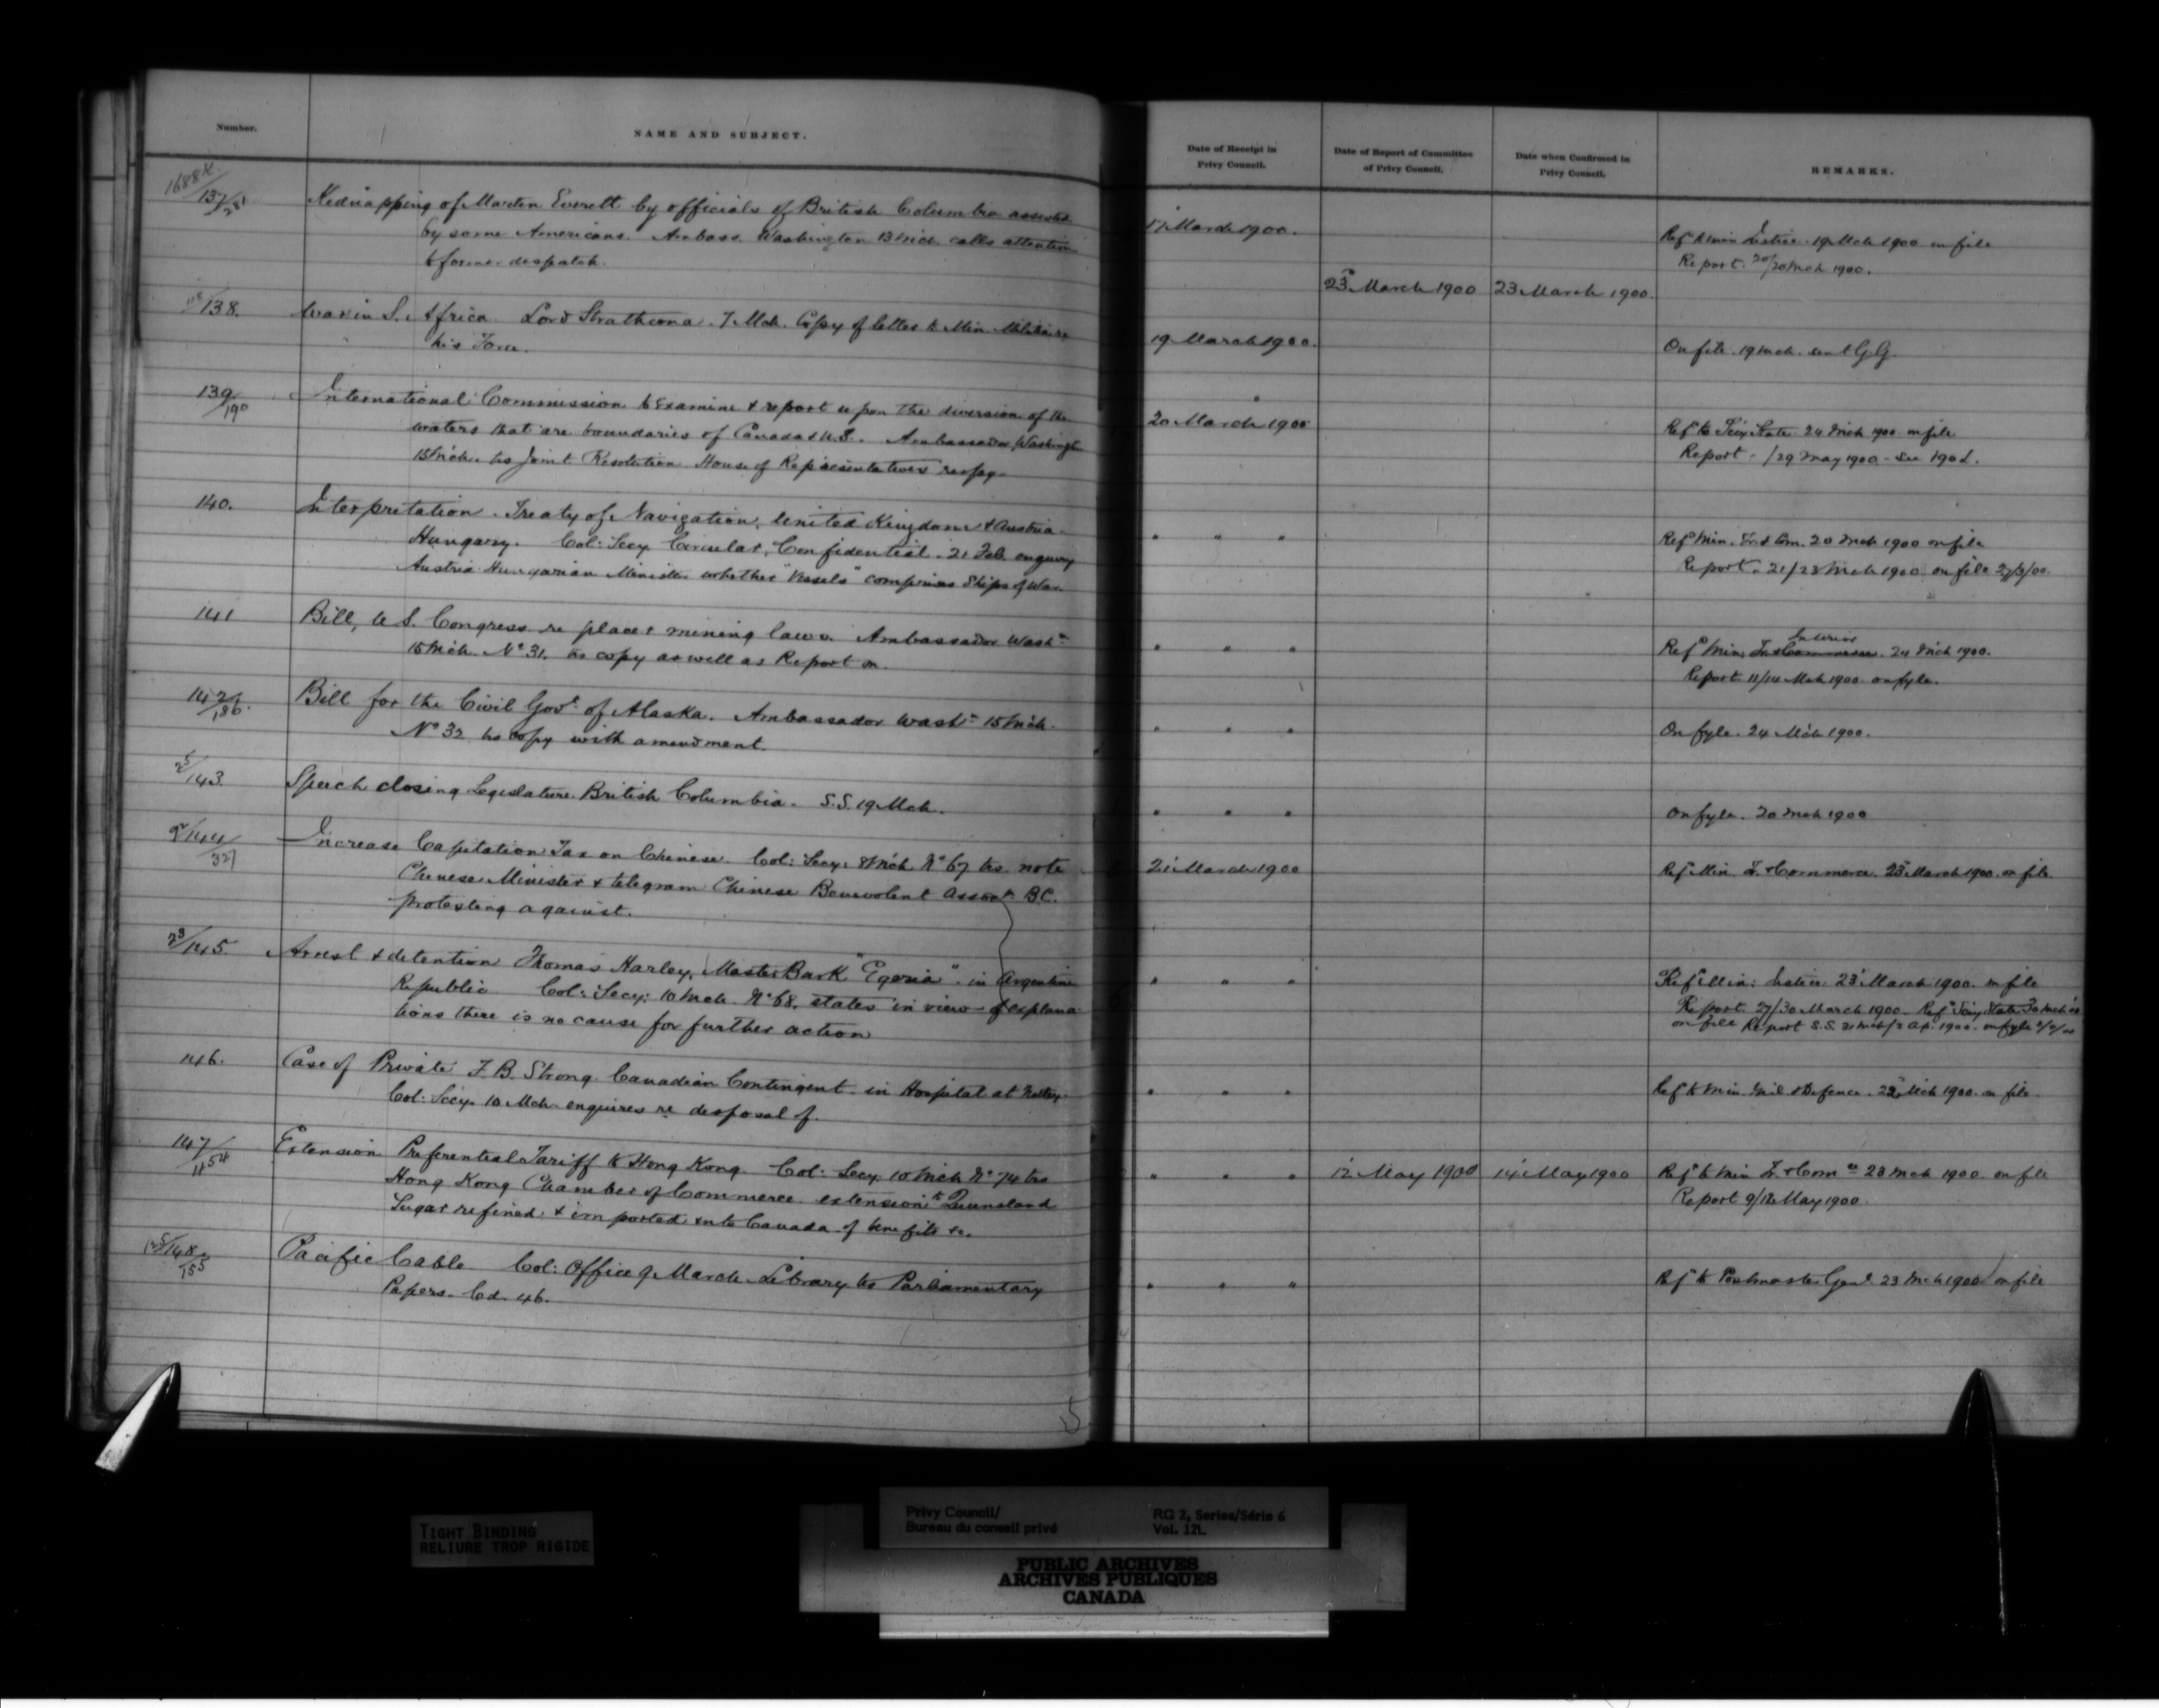 Number.
NAME AND SUBJECT.
Date of Receipt in
Privy Council.
Date of Report of Committee
of Privy Council.
Date when Confirmed in
Privy Council.
REMARKS.
1688K
137/281
Kidnapping of Marten Everett by officials of British Columbia assisted
by some Americans. Ambass. Washington 13 Mch. calls attention
to former despatch.
17 March 1900.
23 March 1900
23 March 1900.
Ref to Min Justice. 19 Mch 1900 on file
Report. 20/20 Mch 1900.
118/138.
War in S. Africa. Lord Strathcona. 7 Mch. Copy of letter to Min. Militia re
his Force.
19 March 1900.
On file. 19 Mch. sent G.G.
139/190
International Commission to examine & report upon the diversion of the
waters that are boundaries of Canada & U.S. Ambassador, Washington
15 Mch. trs Joint Resolution House of Representatives
20 March 1900
Ref to Secy State. 24 Mch 1900. on file
Report - /29 May 1900 - See 190 L.
140.
Interpretation. Treaty of Navigation, United Kingdom & Austria
Hungary. Col: Secy Circular, Confidential. 21 Feb. enquiry
Austria Hungarian Minister whether "Vessels" comprises Ships of War.
" " "
Ref Min. Tr. & Com. 20 Mch 1900 on file
Report. 21/23 Mch 1900 on file 27/3/00.
141
Bill, U.S. Congress re placer mining laws. Ambassador Washn
15 Mch. No 31. trs copy as well as Report on.
" " "
Interior
Ref Min. Tr & Commerce. 24 Mch 1900.
Report 11/14 Mch 1900. on fyle.
142/186.
Bill for the Civil Govt of Alaska. Ambassador Washn 15 Mch.
No 32 trs copy with amendment.
" " "
On fyle. 24 Mch 1900.
25/143
Speech closing Legislature British Columbia. S.S. 19 Mch.
" " "
On fyle. 20 Mch 1900
92/144/327
Increase Capitation Tax on Chinese. Col: Secy: 8 Mch. No 67 trs. note
Chinese Minister & telegram Chinese Benevolent Assont B.C.
protesting against.
21 March 1900
Ref Min. Tr. & Commerce. 23 March 1900. on file
23/145.
Arrest & detention Thomas Harley, Master Bark "Egeria". in Argentine
Republic Col: Secy: 10 Mch. No 68. states in view of explana
tions there is no cause for further action
" " "
Ref Min: Justice 23 March 1900. on file
Report. 27/30 March 1900 - Ref Secy State 30 Mch 00
on file Report S.S. 31 Mch/2 Ap. 1900. on fyle
146.
Case of Private F.B. Strong Canadian Contingent. in Hospital at Netley.
Col: Secy. 10 Mch. enquires re disposal of.
" " "
Ref to Min. Mil & Defence. 22 Mch 1900. on file.
147/1154
Extension Preferential Tariff to Hong Kong. Col: Secy. 10 Mch No 74 trs
Hong Kong Chamber of Commerce. extension to Queensland
Sugar refined & imported into Canada of benefits &c.
" " "
12 May 1900
14 May 1900
Ref to Min Tr. & Comce 23 Mch 1900. on file
Report 9/12 May 1900.
125/148/155
Pacific Cable Col: Office 9 March. Library trs Parliamentary
Papers. Cd. 46.
" " "
Ref to Postmaster Genl 23 Mch 1900 on file
5
TIGHT BINDING
RELIURE TROP RIGIDE
Privy Council/
Bureau du conseil privé
RG 2, Series/Série 6
Vol. 121
PUBLIC ARCHIVES
ARCHIVES PUBLIQUES
CANADA